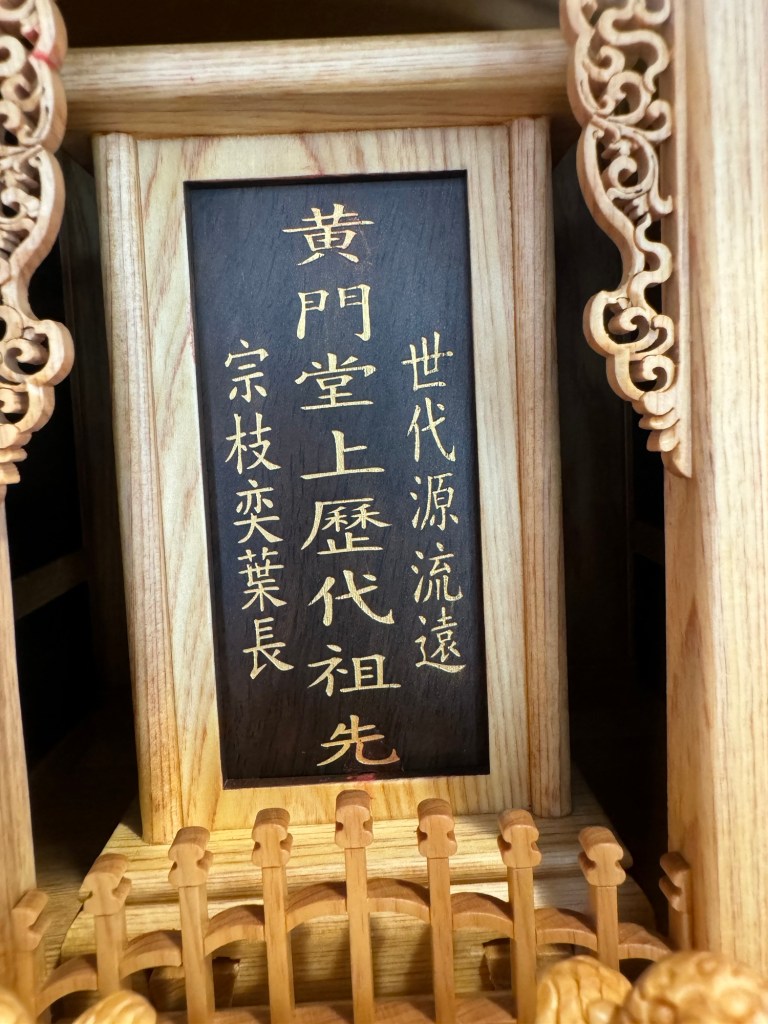 世代源流遠
黄門堂上歷代祖先
宗枝奕葉長